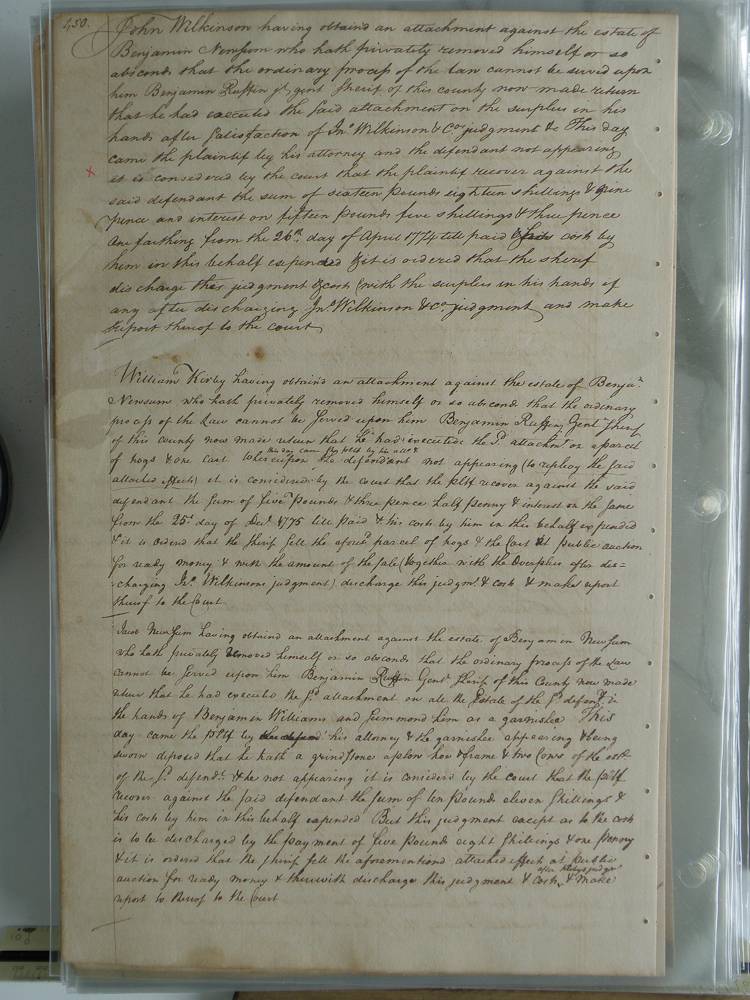 450.
John Wilkinson having obtaind an attachment against the estate of
Benjamin Newsum who hath privately removed himself or so
absconds that the ordinary process of the Law cannot be served upon
him Benjamin Ruffin jr. gent Sherif of this county now made return
that he had executed the said attachment on the surplus in his
hands after satisfaction of Jno. Wilkinson & Co. judgment &c This day
came the plaintif by his attorney and the defendant not appearing
it is considered by the court that the plaintif recover against the
said defendant the sum of sixteen pounds eighteen shillings & nine
pence and interest on fifteen pounds five shillings & three pence
one farthing from the 26th. day of April 1774 till paid & his costs by
him in this behalf expended & it is ordered that the sherif
discharge this judgment & cost (with the surplus in his hands if
any after discharging Jno. Wilkinson & Co. judgment and make
report thereof to the court
William Kirby having obtaind an attachment against the estate of Benja.
Newsum who hath privately removed himself or so absconds that the ordinary
process of the Law cannot be served upon him Benjamin Ruffin Gent Sherif
of this County now made return that he had executed the sd. attachmt. on a parcel
this day came the by his
of hogs & one cart Whereupon the defendant not appearing (to replevy the said
attached effects) it is considered by the court that the pltf recover against the said
defendant the sum of five pounds & three pence half penny & interest on the same
from the 25th. day of Decr. 1775 till paid & his costs by him in this behalf expended
& it is orderd that the Sherif sell the parcel of hogs & the Cart at public auction
for ready money & with the amount of the sale (together with the Overplus after dis=
charging Jno. Wilkinsons judgment) discharge this judgmt. & cost & make report
thereof to the Court
Jacob Newsum having obtaind an attachment against the estate of Benjamin Newsum
who hath privately removed himself or so absconds that the ordinary process of the Law
cannot be served upon him Benjamin Ruffin Gent. Sherif of this County now made
return that he had executed the sd. attachment on all the Estate of the sd. defendt. in
the hands of Benjamin Williams and summond him as a garnishee This
day came the Pltf by his attorney & the garnishee appearing & being
sworn deposed that he hath a grindstone hoe & frame & two Cows of the
of the sd. defendt. & he not appearing it is considerd by the court that the pltf
recover against the said defendant the sum of ten pounds eleven shillings &
his costs by him in this behalf expended But this judgment except as to the costs
is to be discharged by the payment of five pounds eight shillings & one penny
& it is ordered that the Sherif sell the aforementiond attached effects at public
after Kirbys judgmt.
auction for ready money & therewith discharge this judgment & Costs & make
report thereof to the Court